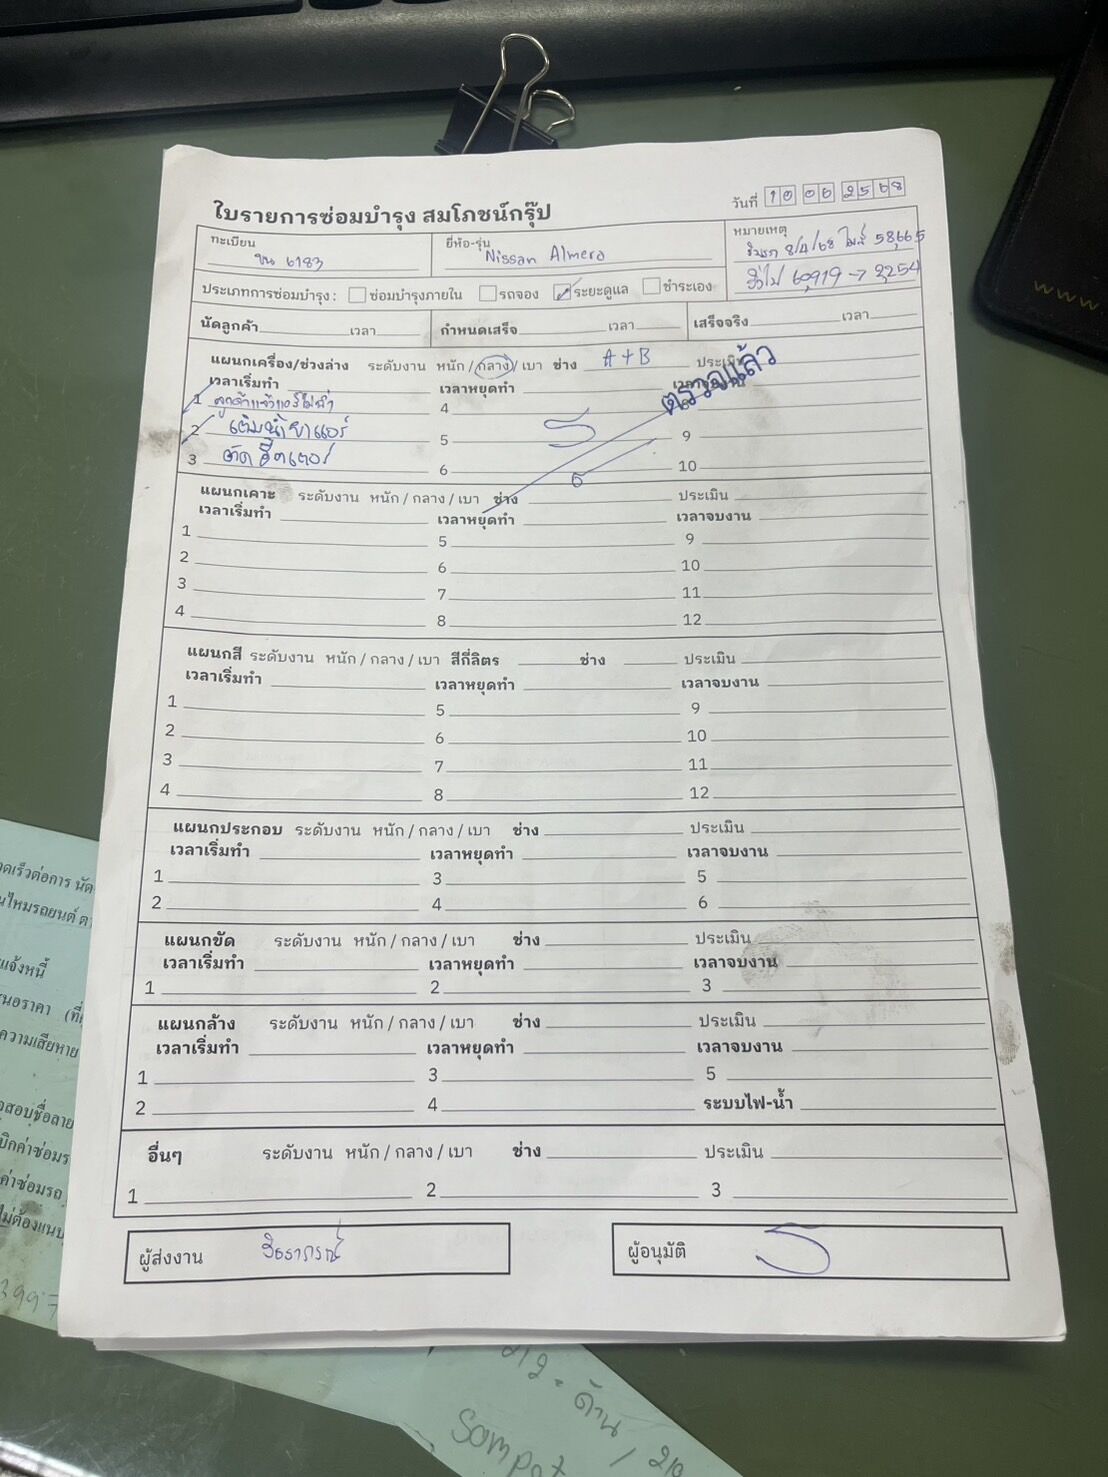 ใบรายการซ่อมบำรุง สมโภชน์กรุ๊ป
วันที่ 10 06 2568
ทะเบียน ขน 6183
ยี่ห้อ-รุ่น Nissan Almera
หมายเหตุ
8/4/68 ไมล์ 58,665
60,919 -> 2,254
ประเภทการซ่อมบำรุง : ซ่อมบำรุงภายใน รถจอง ระยะดูแล ชำระเอง
นัดลูกค้า เวลา กำหนดเสร็จ เวลา เสร็จจริง เวลา
แผนกเครื่อง/ช่วงล่าง ระดับงาน หนัก / กลาง / เบา ช่าง A+B ประเมิน
เวลาเริ่มทำ เวลาหยุดทำ เวลาจบงาน
ตรวจแล้ว
1 ลูกค้าแจ้งแอร์ไม่ฉ่ำ 4
2 เติมน้ำยาแอร์ 5 9
3 ตัดฮีตเตอร์ 6 10
แผนกเคาะ ระดับงาน หนัก / กลาง / เบา ช่าง ประเมิน
เวลาเริ่มทำ เวลาหยุดทำ เวลาจบงาน
1 5 9
2 6 10
3 7 11
4 8 12
แผนกสี ระดับงาน หนัก / กลาง / เบา สีกี่ลิตร ช่าง ประเมิน
เวลาเริ่มทำ เวลาหยุดทำ เวลาจบงาน
1 5 9
2 6 10
3 7 11
4 8 12
แผนกประกอบ ระดับงาน หนัก / กลาง / เบา ช่าง ประเมิน
เวลาเริ่มทำ เวลาหยุดทำ เวลาจบงาน
1 3 5
2 4 6
แผนกขัด ระดับงาน หนัก / กลาง / เบา ช่าง ประเมิน
เวลาเริ่มทำ เวลาหยุดทำ เวลาจบงาน
1 2 3
แผนกล้าง ระดับงาน หนัก / กลาง / เบา ช่าง ประเมิน
เวลาเริ่มทำ เวลาหยุดทำ เวลาจบงาน
1 3 5
2 4 ระบบไฟ-น้ำ
อื่นๆ ระดับงาน หนัก / กลาง / เบา ช่าง ประเมิน
1 2 3
ผู้ส่งงาน
ผู้อนุมัติ
แจ้งหนี้
ความเสียหาย
212 = ด้าน /